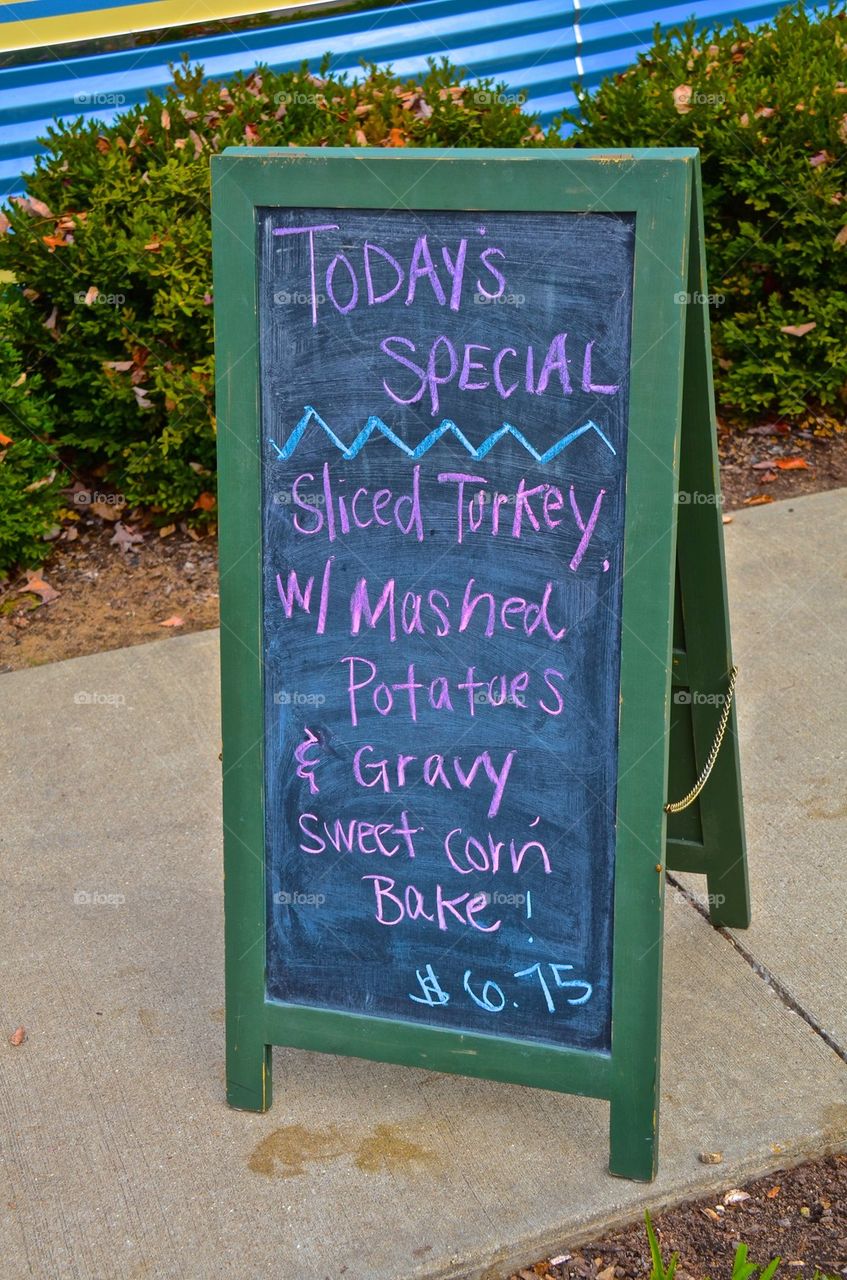 TODAY'S
SPECIAL
Sliced Turkey,
w/ Mashed
Potatoes
& Gravy
Sweet Corn
Bake !
$6.75